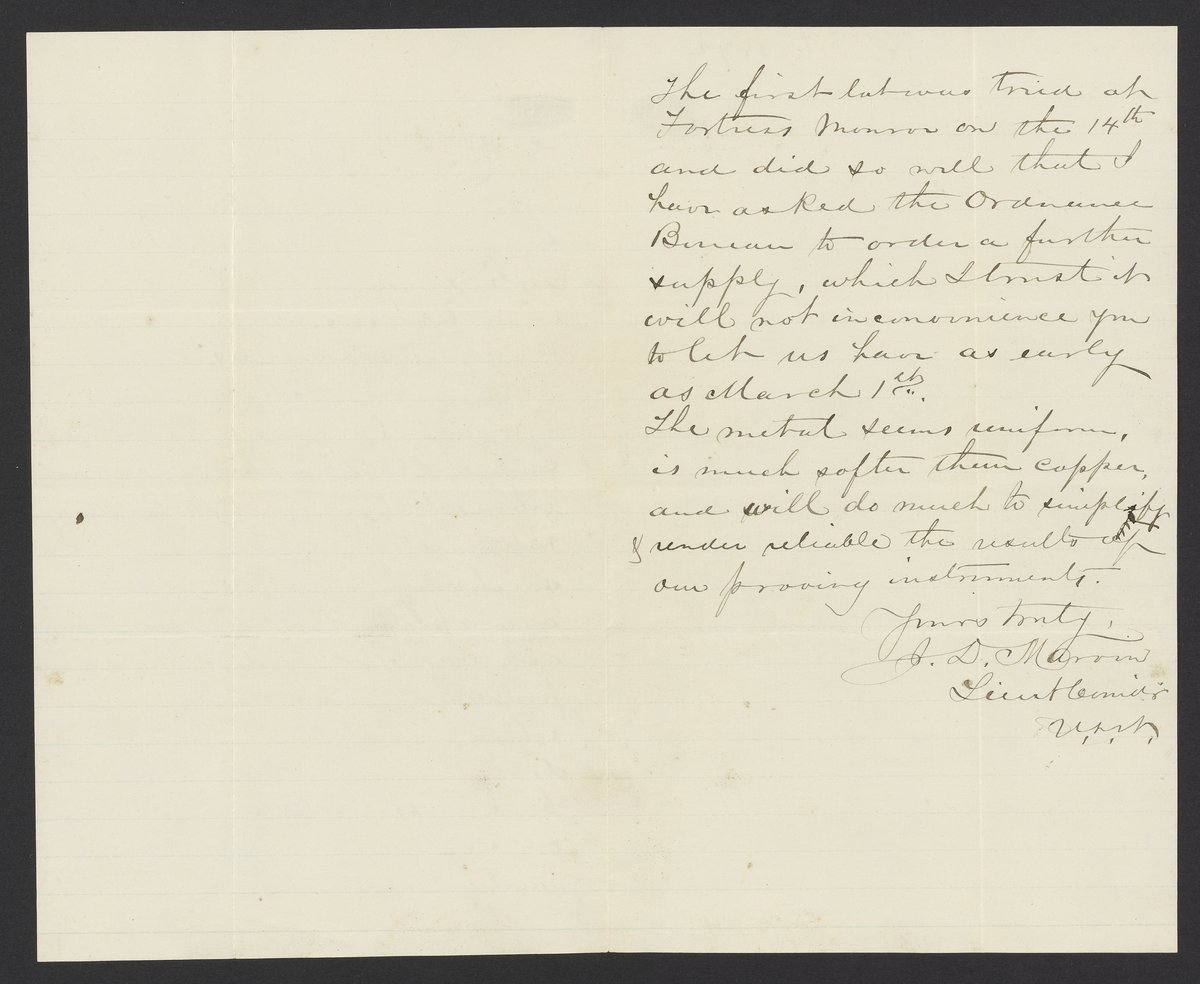 The first lot was tried at
Fortress Monroe on the 14th
and did so well that I
have asked the Ordnance
Bureau to order a further
supply, which I trust it
will not inconvenience you
to let us have as early
as March 1st.
The metal seems uniform,
is much softer than copper,
and will do much to simplify
& render reliable the results of
our proving instruments.
Yours truly,
J. D. Marvin
Lieut Comdr
U.S.N.